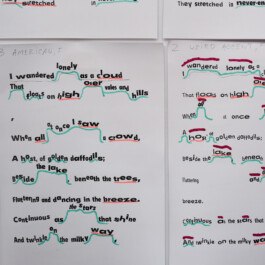 stretched in
They stretched in never-en
3 AMERICAN. ?
lonely
I wandered as a cloud
o'er
That floats on high vales and hills
,
at once I saw
When all a crowd,
A host, of golden daffodils;
the lake
Beside beneath the trees,
Fluttering and dancing in the breeze.
the stars
Continuous as that shine
on way,
And twinkle the milky
2
I wandered lonely as a
o'er
That floats on high
When once
A host, of golden daffodils;
Beside the beneath
Fluttering and
breeze.
Continuous as the stars that
And twinkle on the milky wa